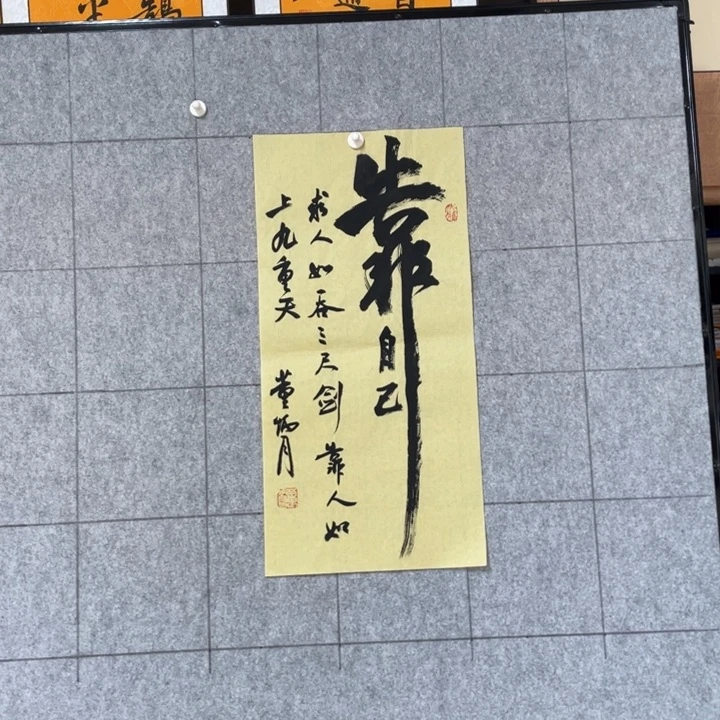 靠自己
求人如吞三尺剑 靠人如
上九重天
董炳月